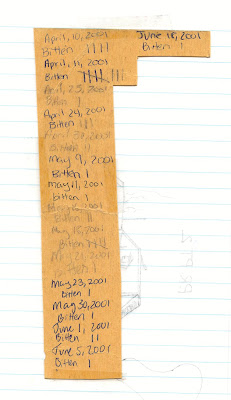 April, 10, 2001
Bitten IIII
April, 11, 2001
Bitten
April, 23, 2001
Bitten I
April 24, 2001
Bitten III
April 2001
Bitten II
May 9, 2001
Bitten I
May 11, 2001
bitten I
May 2001
Bitten II
May 18, 2001
Bitten
May 21, 2001
Bitten I
May 23, 2001
Bitten I
May 30, 2001
Bitten I
June 1, 2001
Bitten II
June 5, 2001
Bitten I
June 18, 2001
Bitten I